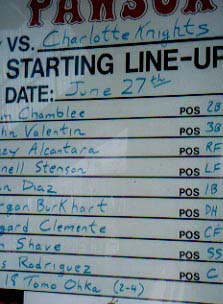 PAWSOX
VS. Charlotte Knights
STARTING LINE-UP
DATE: June 27th
m Chamblee POS 2B
hn Valentin POS 3B
ey Alcantara POS RF
nell Stenson POS LF
an Diaz POS 1B
rgan Burkhart POS DH
gard Clemente POS CF
n Shave POS SS
s Rodriguez POS C
18 Tomo Ohka (2-4)